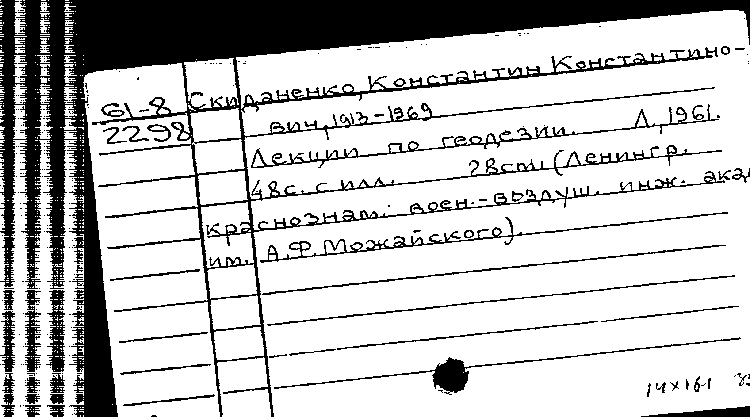 61-8 Скиданенко, Константин Константино-
2298 вич, 1913-1969
Лекции по геодезии. Л., 1961.
48с. с илл. 28см (Ленингр.
краснознам. воен.-воздуш. инж. акад
им. А.Ф.Можайского).
14х161